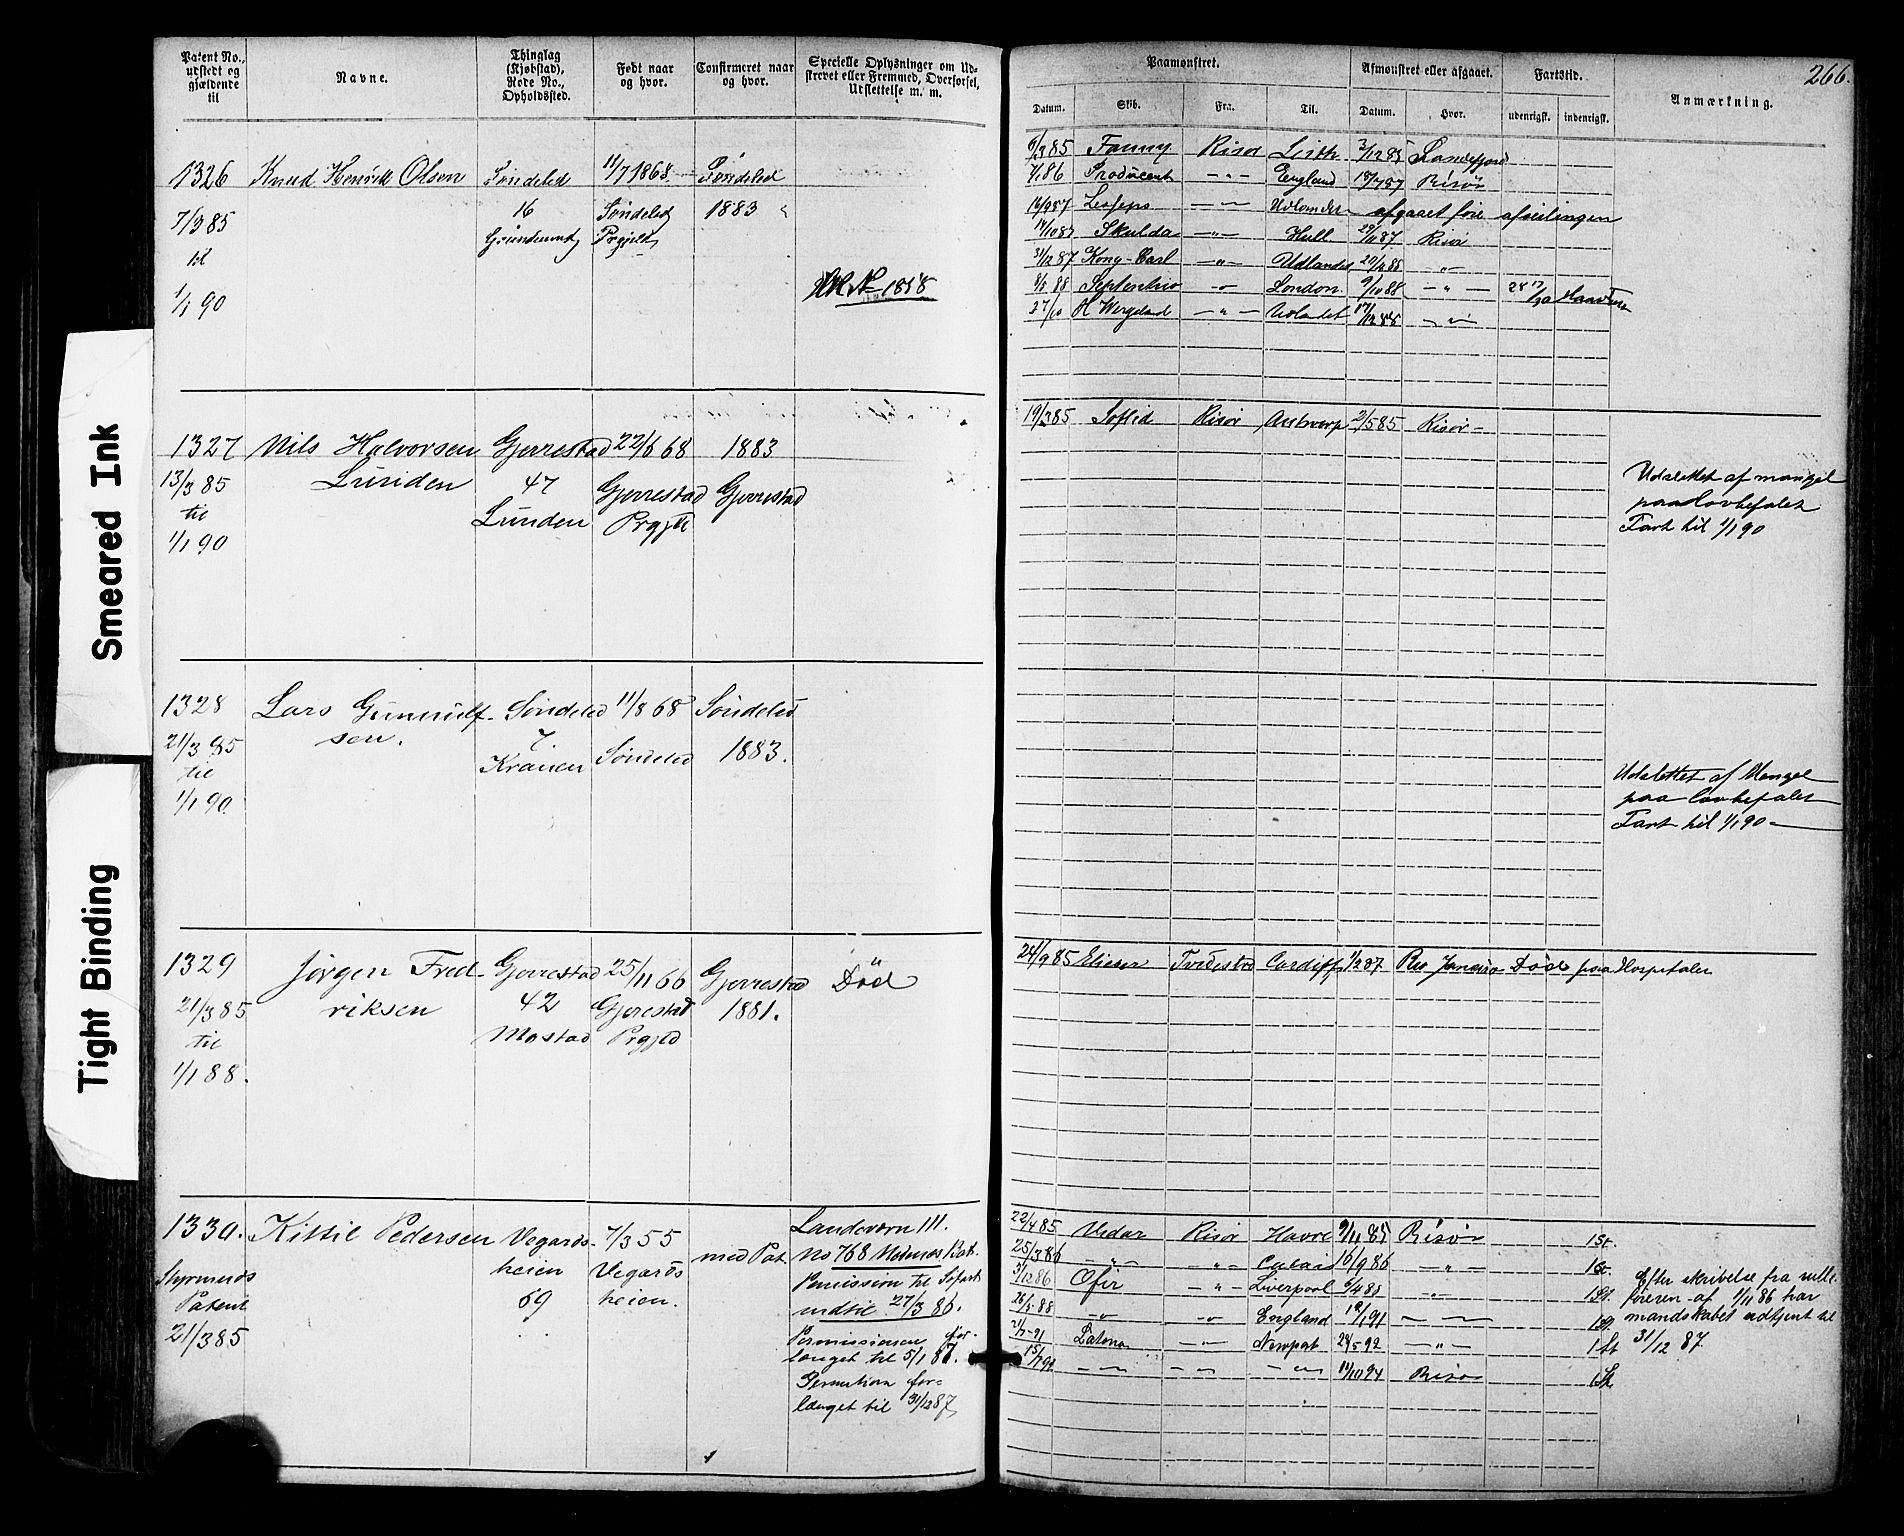 266.
Patent No., udstedt og gjældende til
Navne.
Thinglag (Kjøbstad), Rode No., Opholdssted.
Født naar og hvor.
Confirmeret naar og hvor.
Specielle Oplysninger om Udskrevet eller Fremmed, Overførsel, Udslettelse m. m.
Paamønstret.
Afmønstret eller afgaaet.
Fartstid.
Anmærkning.
Datum.
Skib.
Fra.
Til.
Datum.
Hvor.
udenrigsk.
indenrigsk.
1326 Knud Henrik Olsen Søndeled 11/7 1868. Søndeled
7/3 85 16 Søndeled 1883
til Prgjeld
1/1 90
No 1858
6/3 85 Fanny Risør Leith 3/12 85
7/1 86 Producent — " — England 18/7 87 Risør
16/9 87 Lesseps — " — Udlandet afgaaet före afseilingen
14/10 87 Skulda — " — Hull 29/11 87 Risør
31/12 87 Kong Carl — " — Udlandet 20/4 88 — " —
8/5 88 Septentrio — " — London 9/10 88 — " —
27/10 H Wergeland — " — Udlandet 17/12 88 — " —
1327 Nils Halvorsen Gjerrestad 22/6 68 1883
13/3 85 Lunden 47 Gjerrestad Gjerrestad
til Lunden Prgjld
1/1 90
19/3 85 Solid Risør Antverp 2/5 85 Risør
Udslettet af mangel
paa lovbefalet
Fart til 1/1 90
1328 Lars Gunnulf- Søndeled 11/8 68 Søndeled
21/3 85 sen. 7. Søndeled 1883.
til Kranen
1/1 90
Udslettet af Mangel
paa lovbefalet
Fart til 1/1 90
1329 Jørgen Fred- Gjerrestad 25/11 66 Gjerrestad Død
21/3 85 riksen 42 Gjerestad 1881.
til Mostad Prgjld
1/1 88.
24/9 85 Elieser Tvedestrand Cardiff 1/2 87 Rio Janeiro Død paa Hospitalet
1330. Kittil Pedersen Vegards- 7/3 55 med Pat.
Styrmands heien Vegards
Patent 69 heien.
21/3 85
Landeværn III.
No 768 Nidenæs Bat.
Permission til Søfart
indtil 27/3 86.
Permissionen for-
længet til 5/1 87.
Permution for-
længet til 31/12 87
22/4 85 Vidar Risør Havre 9/11 85 Risør 1st.
25/3 86 — " — — " — Calais 16/9 86 — " — 1st.
3/12 86 Ofir — " — Liverpool — " — 1st.
26/5 88 — " — — " — England — " — 1st.
Latona — " — Newport 24/5 92 — " — 1st
15/7 92 — " — — " — — " — 11/10 94 Risør 1st.
Efter skrivelse fra rulle-
føreren af 1/11 86 har
mandskabet udtjent til
31/12 87
Smeared Ink
Tight Binding